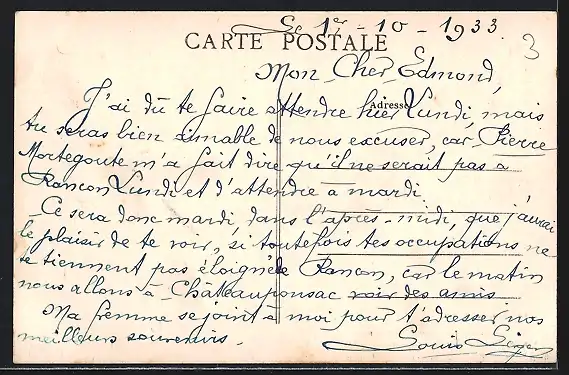 Le 1er - 10 - 1933.
CARTE POSTALE
3
Mon Cher Edmond,
Adresse
J'ai dû te faire attendre hier Lundi, mais
tu seras bien aimable de nous excuser, car Pierre
Mortegoute m'a fait dire qu'il ne serait pas a
Rancon Lundi et d'attendre a mardi
Ce sera donc mardi, dans l'après-midi, que j'aurai
le plaisir de te voir, si toutefois tes occupations ne
te tiennent pas éloigné de Rancon, car le matin
nous allons à Châteauponsac voir des amis
Ma femme se joint à moi pour t'adresser nos
meilleurs souvenirs.
Louis